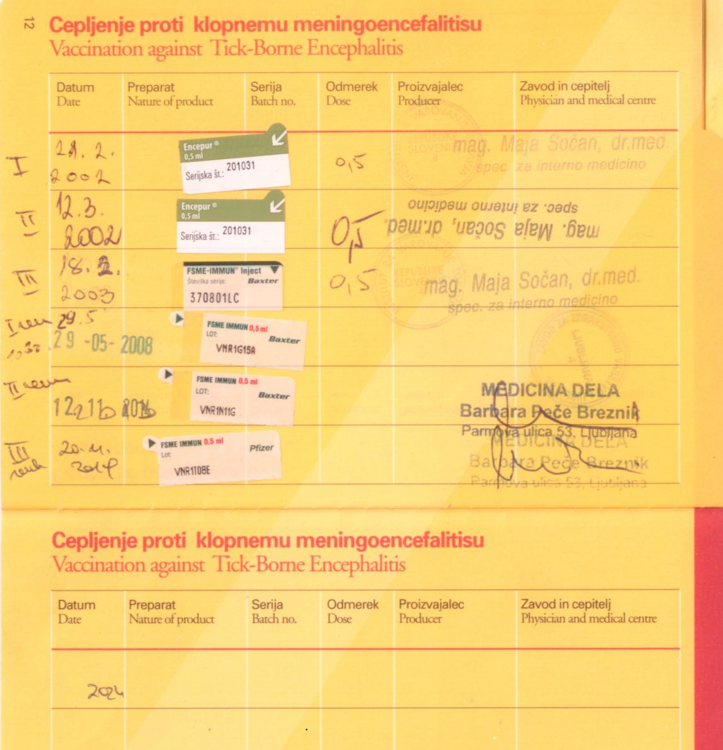 12
Cepljenje proti klopnemu meningoencefalitisu
Vaccination against Tick-Borne Encephalitis
Datum Preparat Serija Odmerek Proizvajalec Zavod in cepitelj
Date Nature of product Batch no. Dose Producer Physician and medical centre
I 2002
Encepur®
0,5 ml
Serijska št.: 201031
0,5
mag. Maja Sočan, dr.med.
spec. za interno medicino
II 12.3.
2002
Encepur®
0,5 ml
Serijska št.: 201031
0,5
mag. Maja Sočan, dr.med.
spec. za interno medicino
III 18.2.
2003
FSME-IMMUN Inject
Baxter
370801LC
0,5
mag. Maja Sočan, dr.med.
spec. za interno medicino
29.5
29 -05- 2008
FSME IMMUN 0,5 ml
LOT: Baxter
VNR1G15A
II
FSME IMMUN 0.5 ml
LOT: Baxter
VNR1N11G
MEDICINA DELA
Barbara Peče Breznik
Parmova ulica 53, Ljubljana
III
FSME IMMUN 0.5 ml
Lot: Pfizer
VNR1T08E
MEDICINA DELA
Barbara Peče Breznik
Parmova ulica 53, Ljubljana
Cepljenje proti klopnemu meningoencefalitisu
Vaccination against Tick-Borne Encephalitis
Datum Preparat Serija Odmerek Proizvajalec Zavod in cepitelj
Date Nature of product Batch no. Dose Producer Physician and medical centre
2024